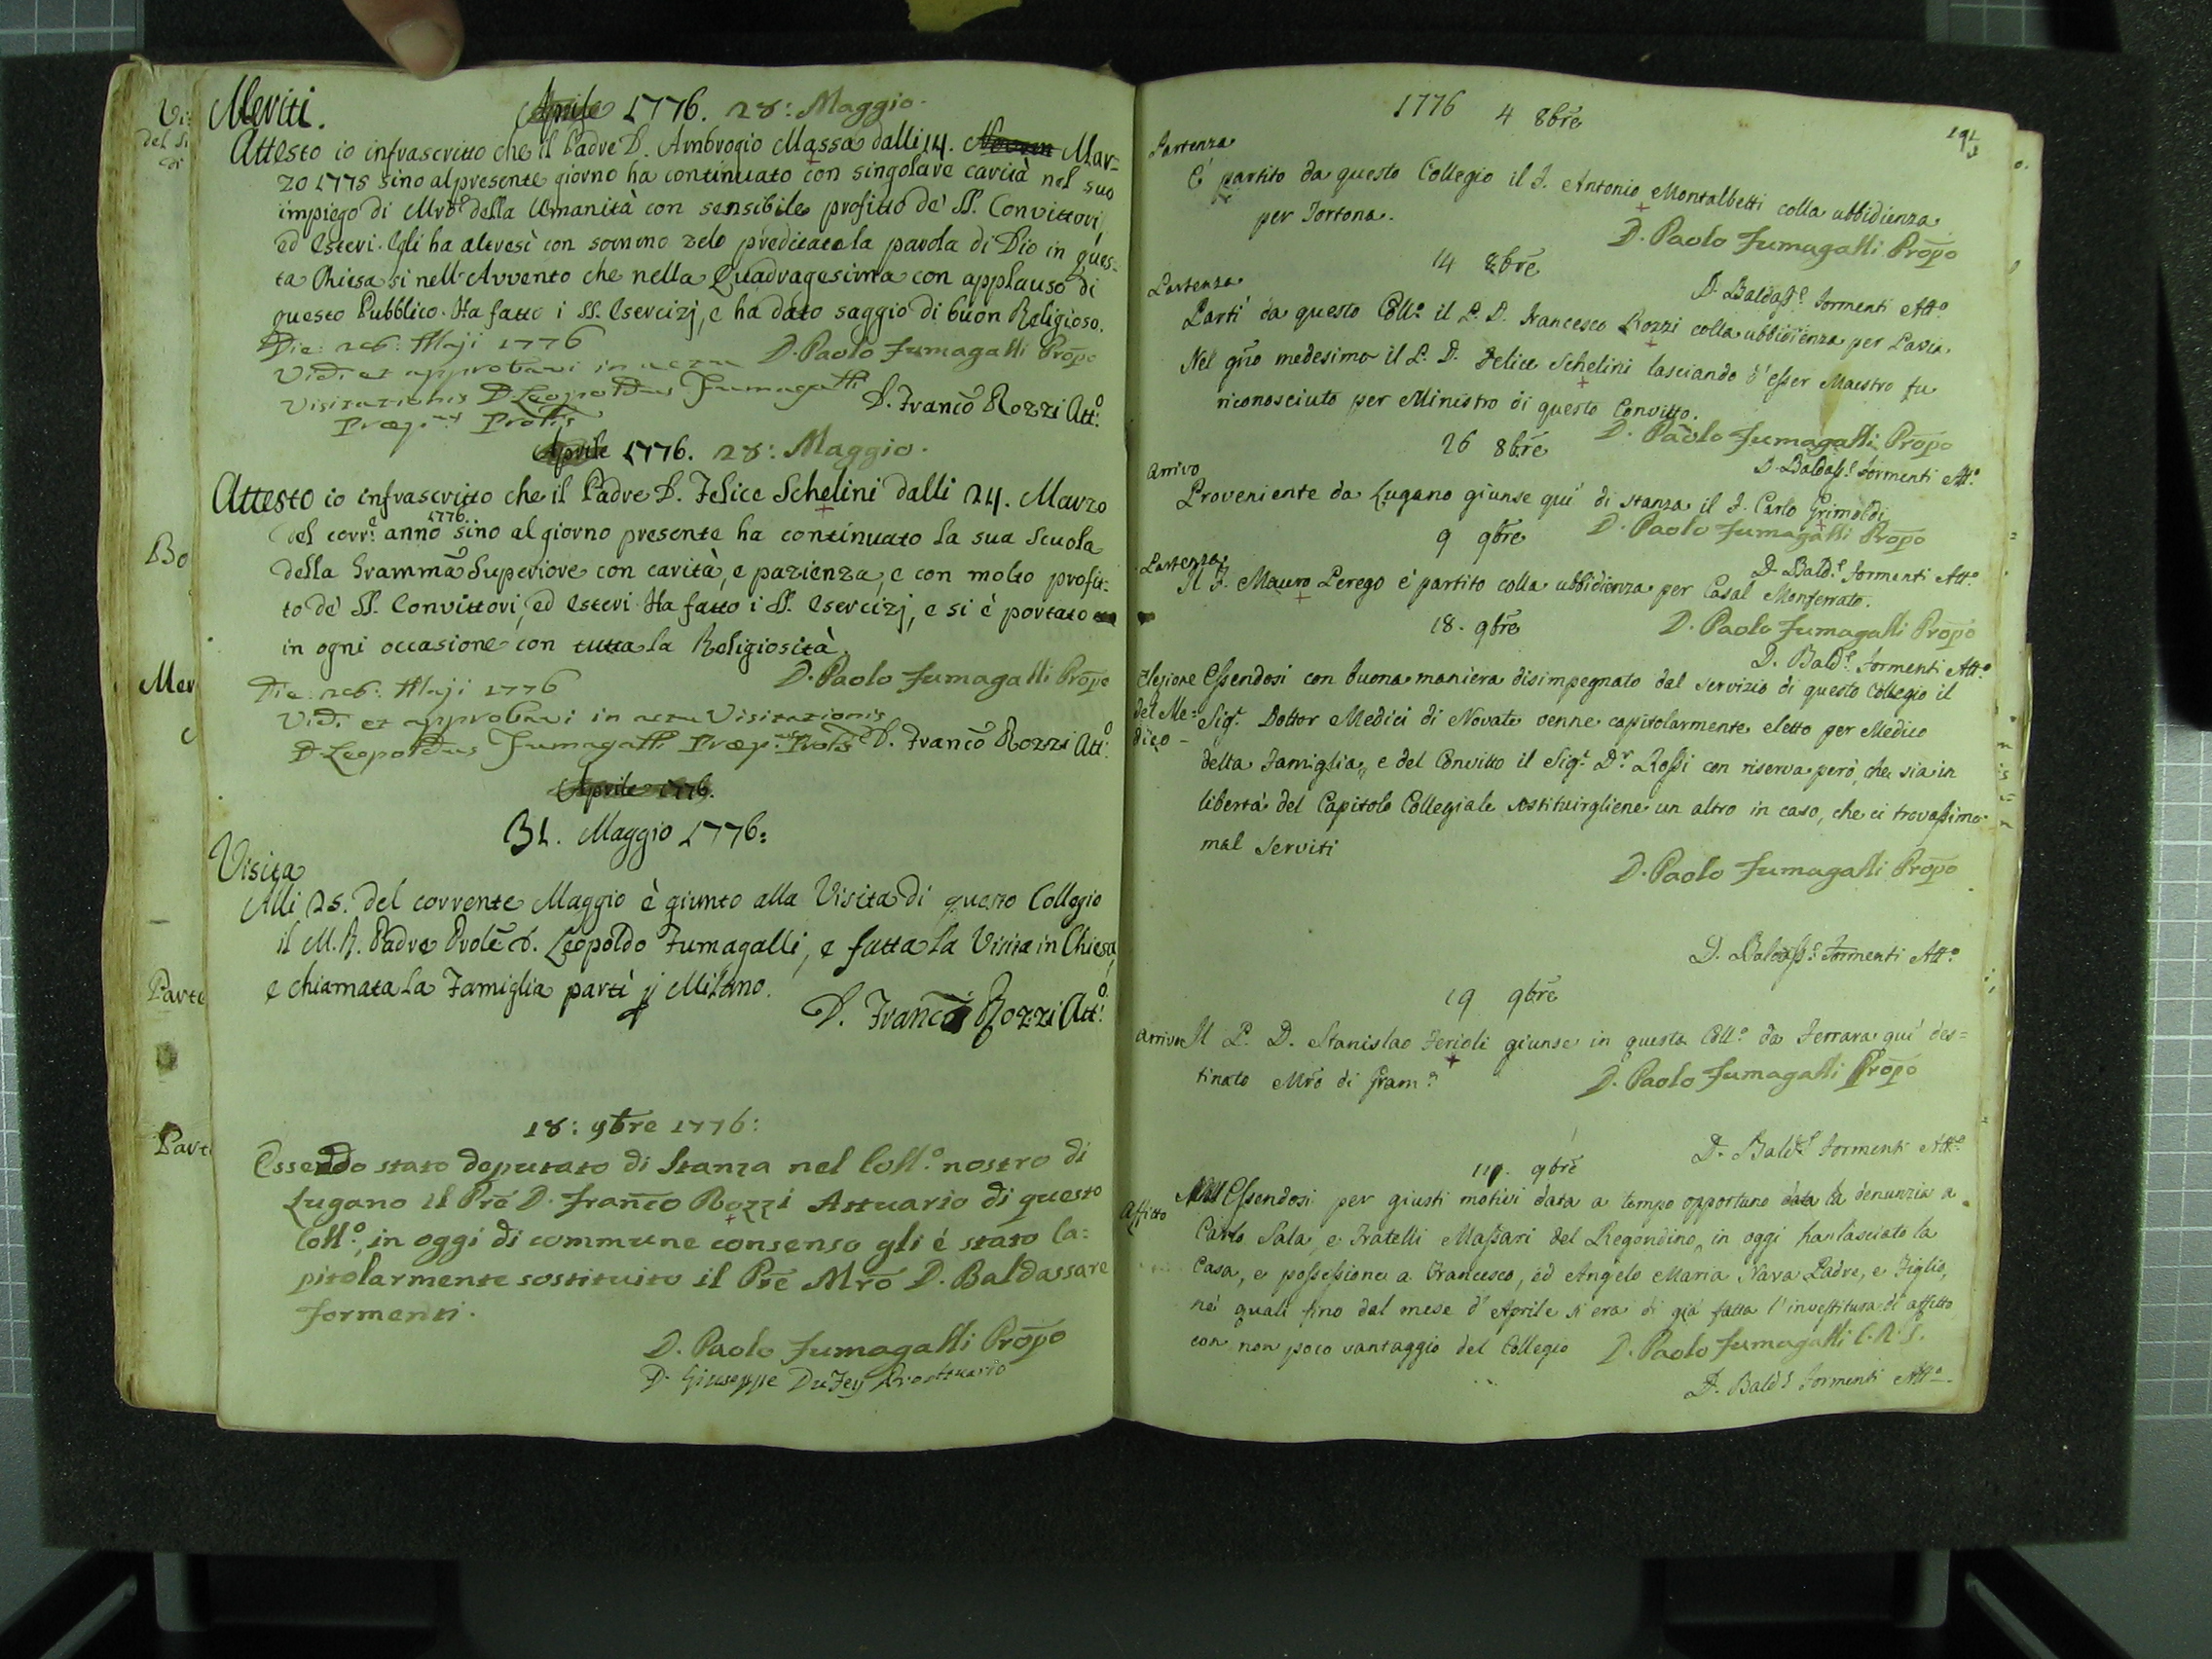 Meriti.
Aprile 1776. 28: Maggio.
Attesto io infrascritto che il Padre D. Ambrogio Massa dalli 14. Noven Mar=
zo 1775 sino al presente giorno ha continuato con singolare carità nel suo
impiego di Mrō della Umanità con sensibile profitto de' SS. Convittori,
ed Esteri. Egli ha altresì con sommo zelo predicato la parola di Dio in ques=
ta Chiesa sì nell'Avvento che nella Quadragesima con applauso di
questo Pubblico. Ha fatto i SS. Esercizj, e ha dato saggio di buon Religioso.
Die: 26: Maji 1776
D. Paolo Fumagalli Propo
Vidi et approbavi in actu
Visitationis D. Leopoldus Fumagalli
D. Franco Rozzi Atto.
Præp. Prolis
Aprile 1776. 28: Maggio.
Attesto io infrascritto che il Padre D. Felice Schelini dalli 24. Marzo
1776.
del corre anno sino al giorno presente ha continuato la sua Scuola
della Gramma Superiore con carità, e pazienza, e con molto profit=
to de' SS. Convittori, ed Esteri. Ha fatto i SS. Esercizj, e si è portato
in ogni occasione con tutta la Religiosità.
D. Paolo Fumagalli Propo
Die: 26: Maji 1776
Vidi et approbavi in actu Visitationis
D. Leopoldus Fumagalli Præp. Prolis D. Franco Rozzi Atto.
Aprile 1776.
31. Maggio 1776:
Visita
Alli 25. del corrente Maggio è giunto alla Visita di questo Collegio
il M. R. Padre Prole D. Leopoldo Fumagalli, e fatta la Visita in Chiesa,
e chiamata la Famiglia partì p Milano.
D. Franco Rozzi Atto.
18: 9bre 1776:
Essendo stato deputato di Stanza nel Coll.o nostro di
Lugano il Pre D. Franco Rozzi Attuario di questo
Coll.o, in oggi di commune consenso gli é stato Ca=
pitolarmente sostituito il Pre Mro D. Baldassare
Formenti.
D. Paolo Fumagalli Propo
D. Giuseppe DuFey Proattuario
1776 4 8bre
Partenza
È partito da questo Collegio il F. Antonio Montalbetti colla ubbidienza
per Tortona.
D. Paolo Fumagalli Propo
14 8bre
D. Baldas.e Formenti Att.o
Partenza
Partì da questo Coll.o il P. D. Francesco Rozzi colla ubbidienza per Pavia.
Nel gno medesimo il P. D. Felice Schelini lasciando d'esser Maestro fu
riconosciuto per Ministro di questo Convitto.
D. Paolo Fumagalli Propo
26 8bre
D. Baldas.e Formenti Att.o
Arrivo
Proveniente da Lugano giunse quì di stanza il F. Carlo Grimoldi
D. Paolo Fumagalli Propo
9 9bre
D. Bald.e Formenti Att.o
Partenza
Il F. Mauro Perego è partito colla ubbidienza per Casal Monferrato.
18. 9bre
D. Paolo Fumagalli Propo
D. Bald.e Formenti Att.o
Elezione
del Me=
dico
Essendosi con buona maniera disimpegnato dal servizio di questo Collegio il
Sig.r Dottor Medici di Novate venne capitolarmente eletto per Medico
della Famiglia, e del Convitto il Sig.r D.r Rossi con riserva però, che sia in
libertà del Capitolo Collegiale sostituirgliene un altro in caso, che ci trovassimo
mal serviti
D. Paolo Fumagalli Propo
D. Baldas.e Formenti Att.o
19 9bre
Arrivo
Il P. D. Stanislao Ferioli giunse in questo Coll.o da Ferrara quì des=
tinato Mro di Gram.a
D. Paolo Fumagalli Propo
D. Bald.e Formenti Att.o
9bre
Affitto
Essendosi per giusti motivi data a tempo opportuno data la denunzia a
Carlo Sala, e Fratelli Massari del Regondino, in oggi han lasciato la
Casa, e possessione a Francesco, ed Angelo Maria Nava Padre, e Figlio,
nè quali fino dal mese d'Aprile si era di già fatta l'investitura di affitto
con non poco vantaggio del Collegio
D. Paolo Fumagalli C. R. S.
D. Bald.e Formenti Att.o